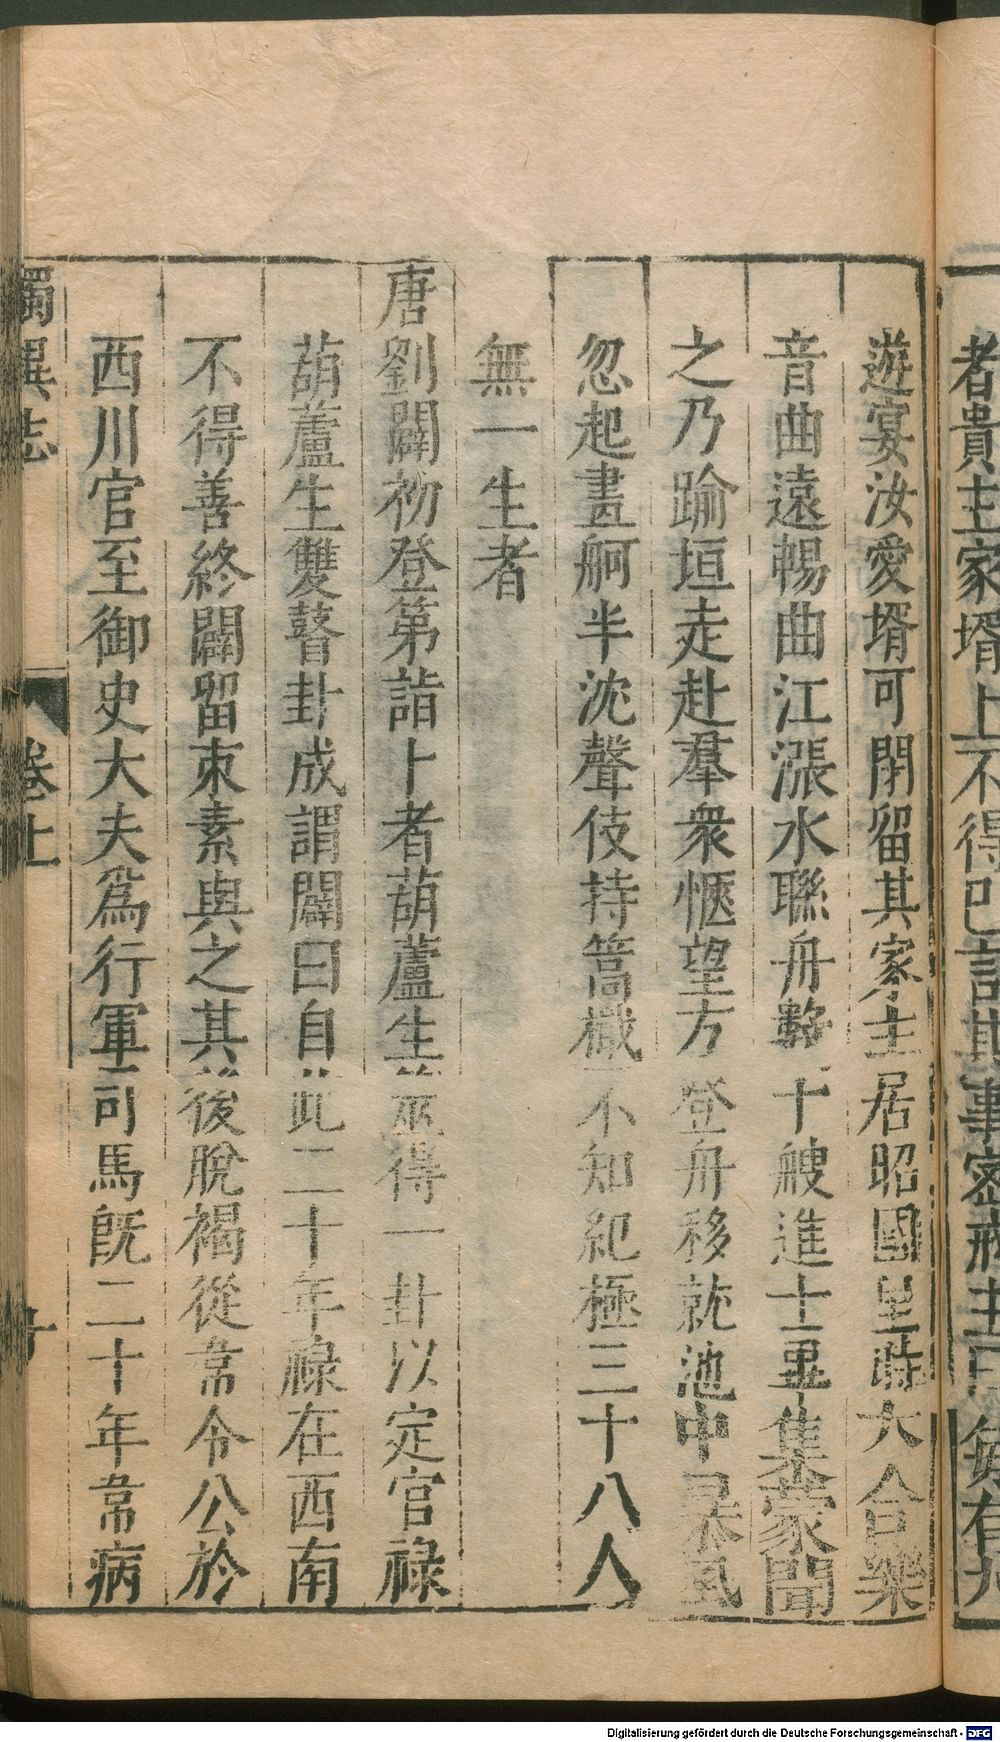 者貴主家壻上不得已許其事密戒主曰每有大
遊宴汝愛壻可閉留其家主居昭國里時大合樂
音曲遠暢曲江漲水聯舟數十艘進士畢集蒙聞
之乃踰垣走赴羣衆愜望方登舟移就池中暴風
忽起畫舸半沈聲伎持篙檝不知紀極三十八人
無一生者
唐劉闢初登第詣卜者葫蘆生筮得一卦以定官祿
葫蘆生雙瞽卦成謂闢曰自此二十年祿在西南
不得善終闢留束素與之其後脫褐從韋令公於
西川官至御史大夫爲行軍司馬旣二十年韋病
獨異志 卷上
Digitalisierung gefördert durch die Deutsche Forschungsgemeinschaft - DFG